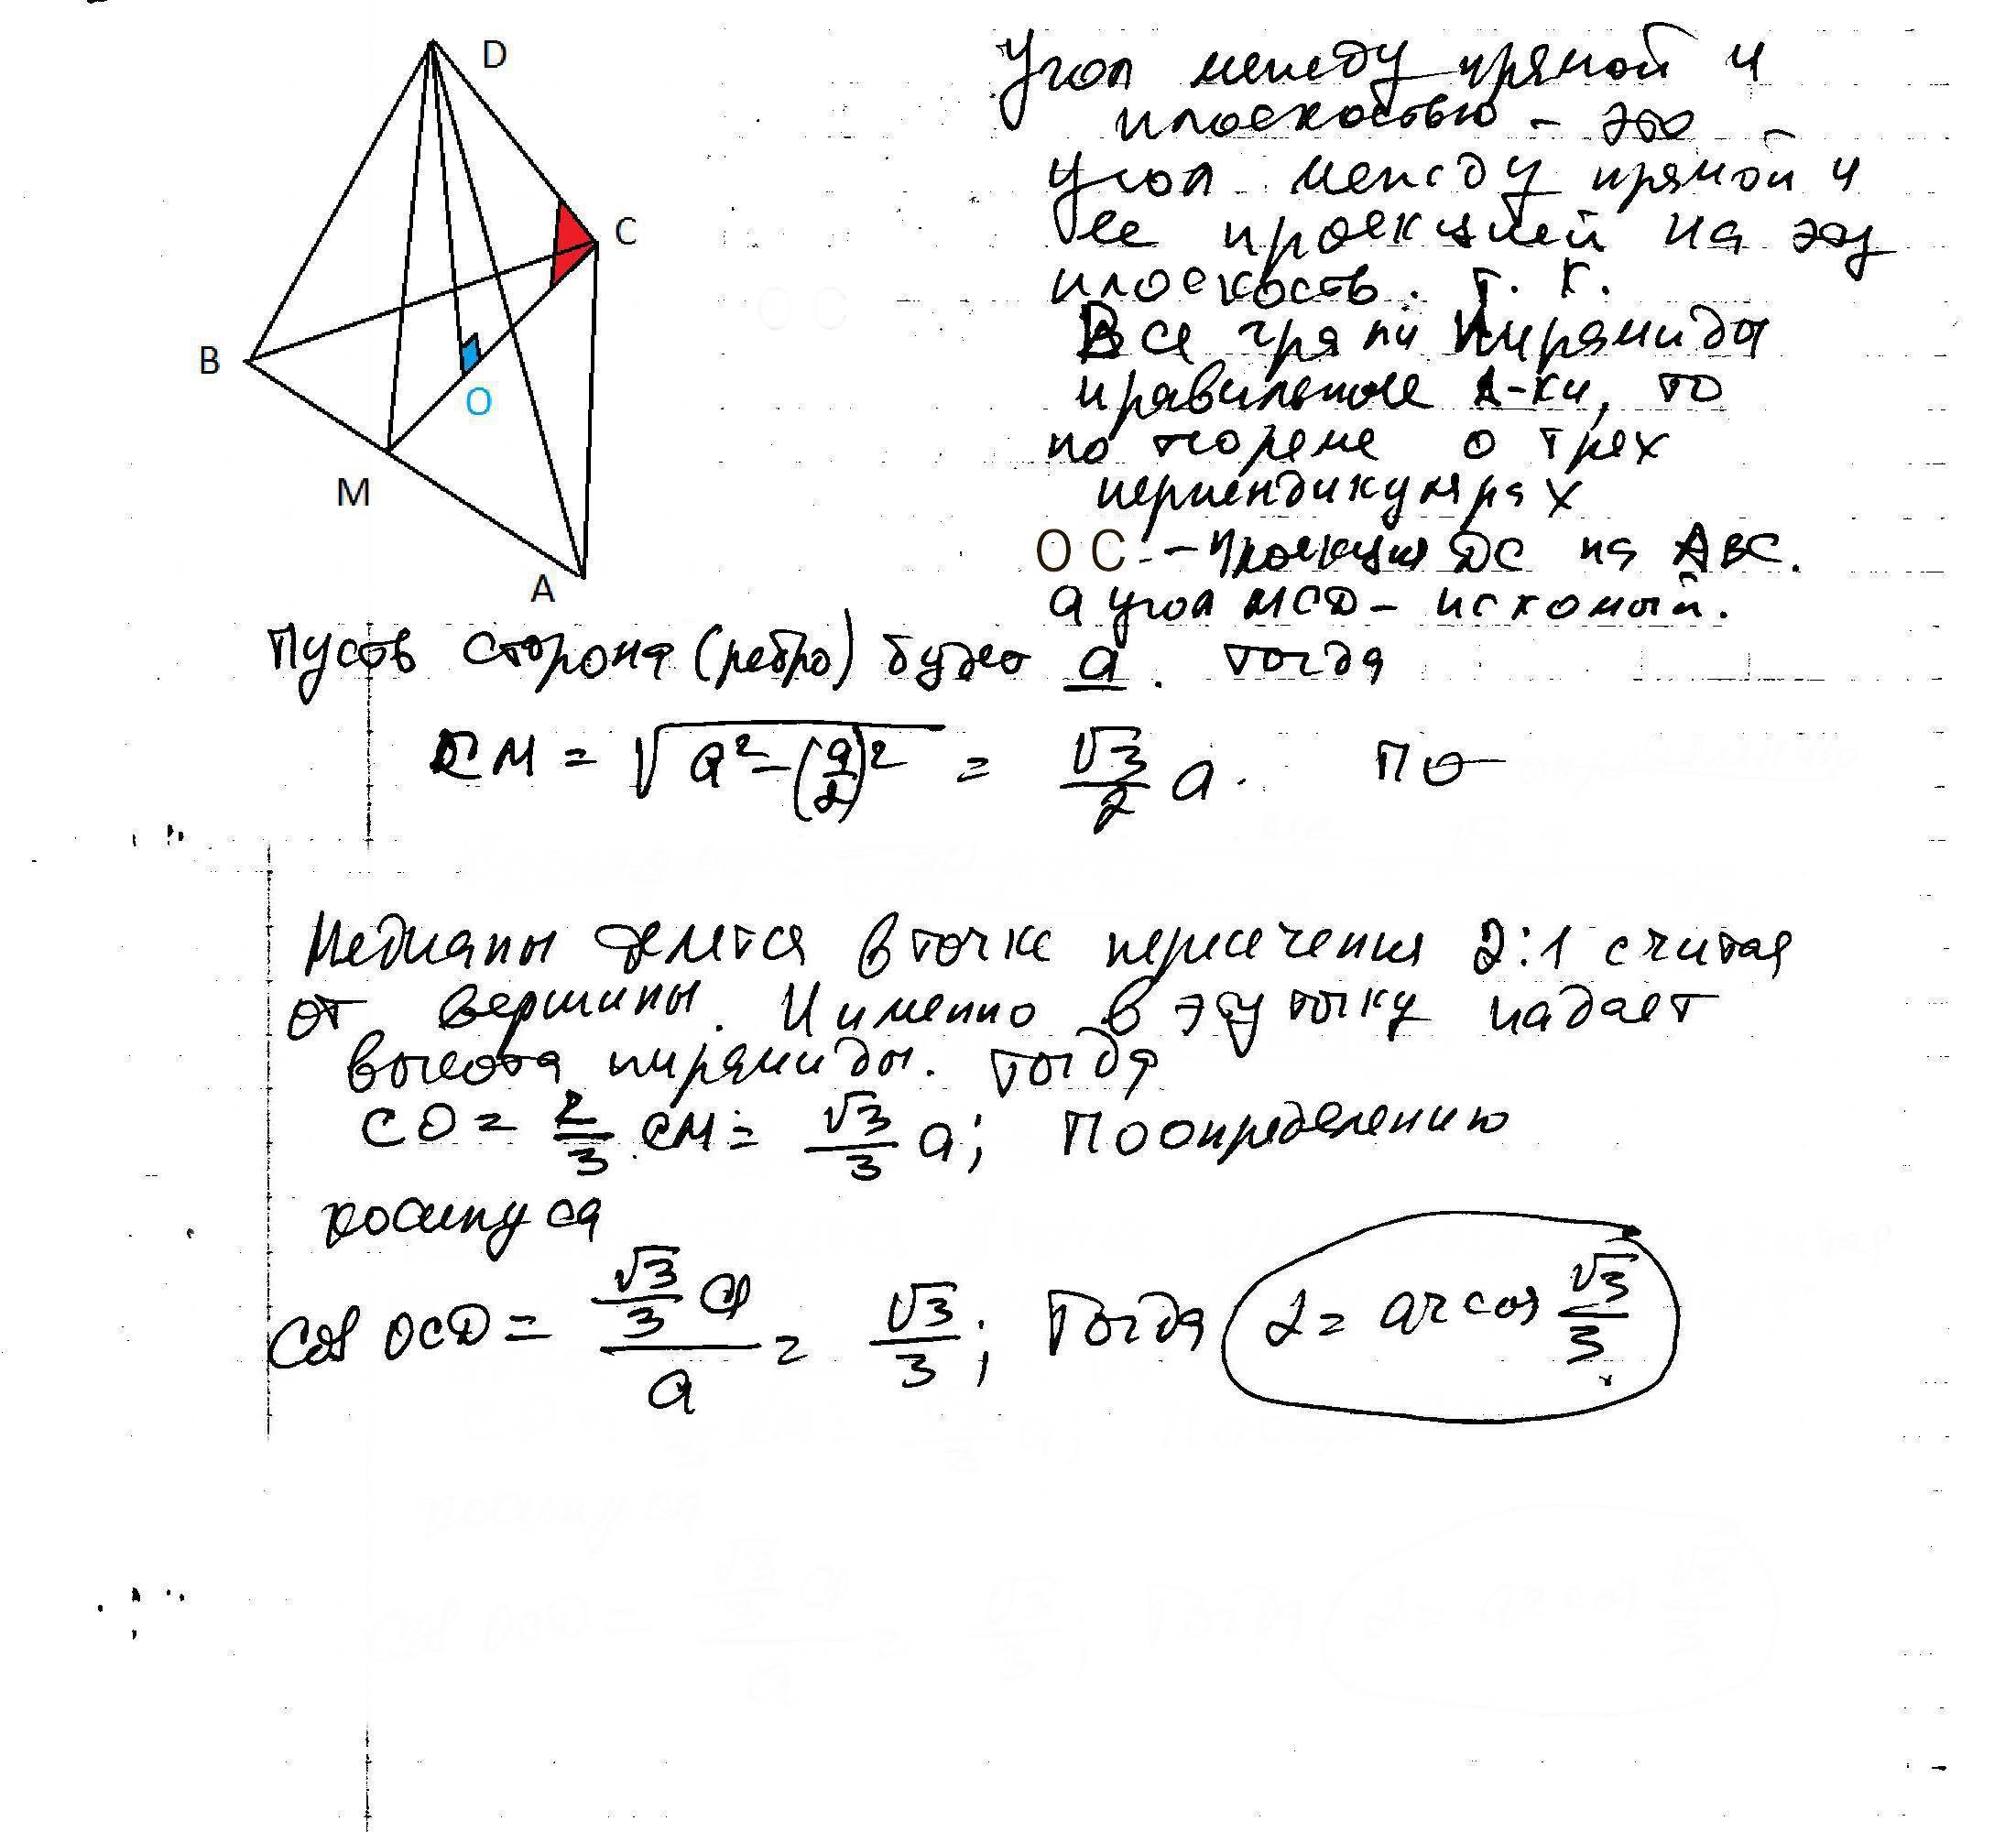 D
C
B
O
M
A
Угол между прямой и
плоскостью - это
угол между прямой и
ее проекцией на эту
плоскость. Т. к.
Все грани пирамиды
правильные Δ-ки, то
по теореме о трех
перпендикулярах
ОС - проекция DC на ABC.
а угол MCD - искомый.
Пусть сторона (ребро) будет a. Тогда
CM = √(a² - (a/2)²) = √3/2 a. По
Медианы делятся в точке пересечения 2:1 считая
от вершины. И именно в эту точку падает
высота пирамиды. Тогда
CO = 2/3 · CM = √3/3 a; По определению
косинуса
Cos OCD = (√3/3 a)/a = √3/3; Тогда α = arccos √3/3